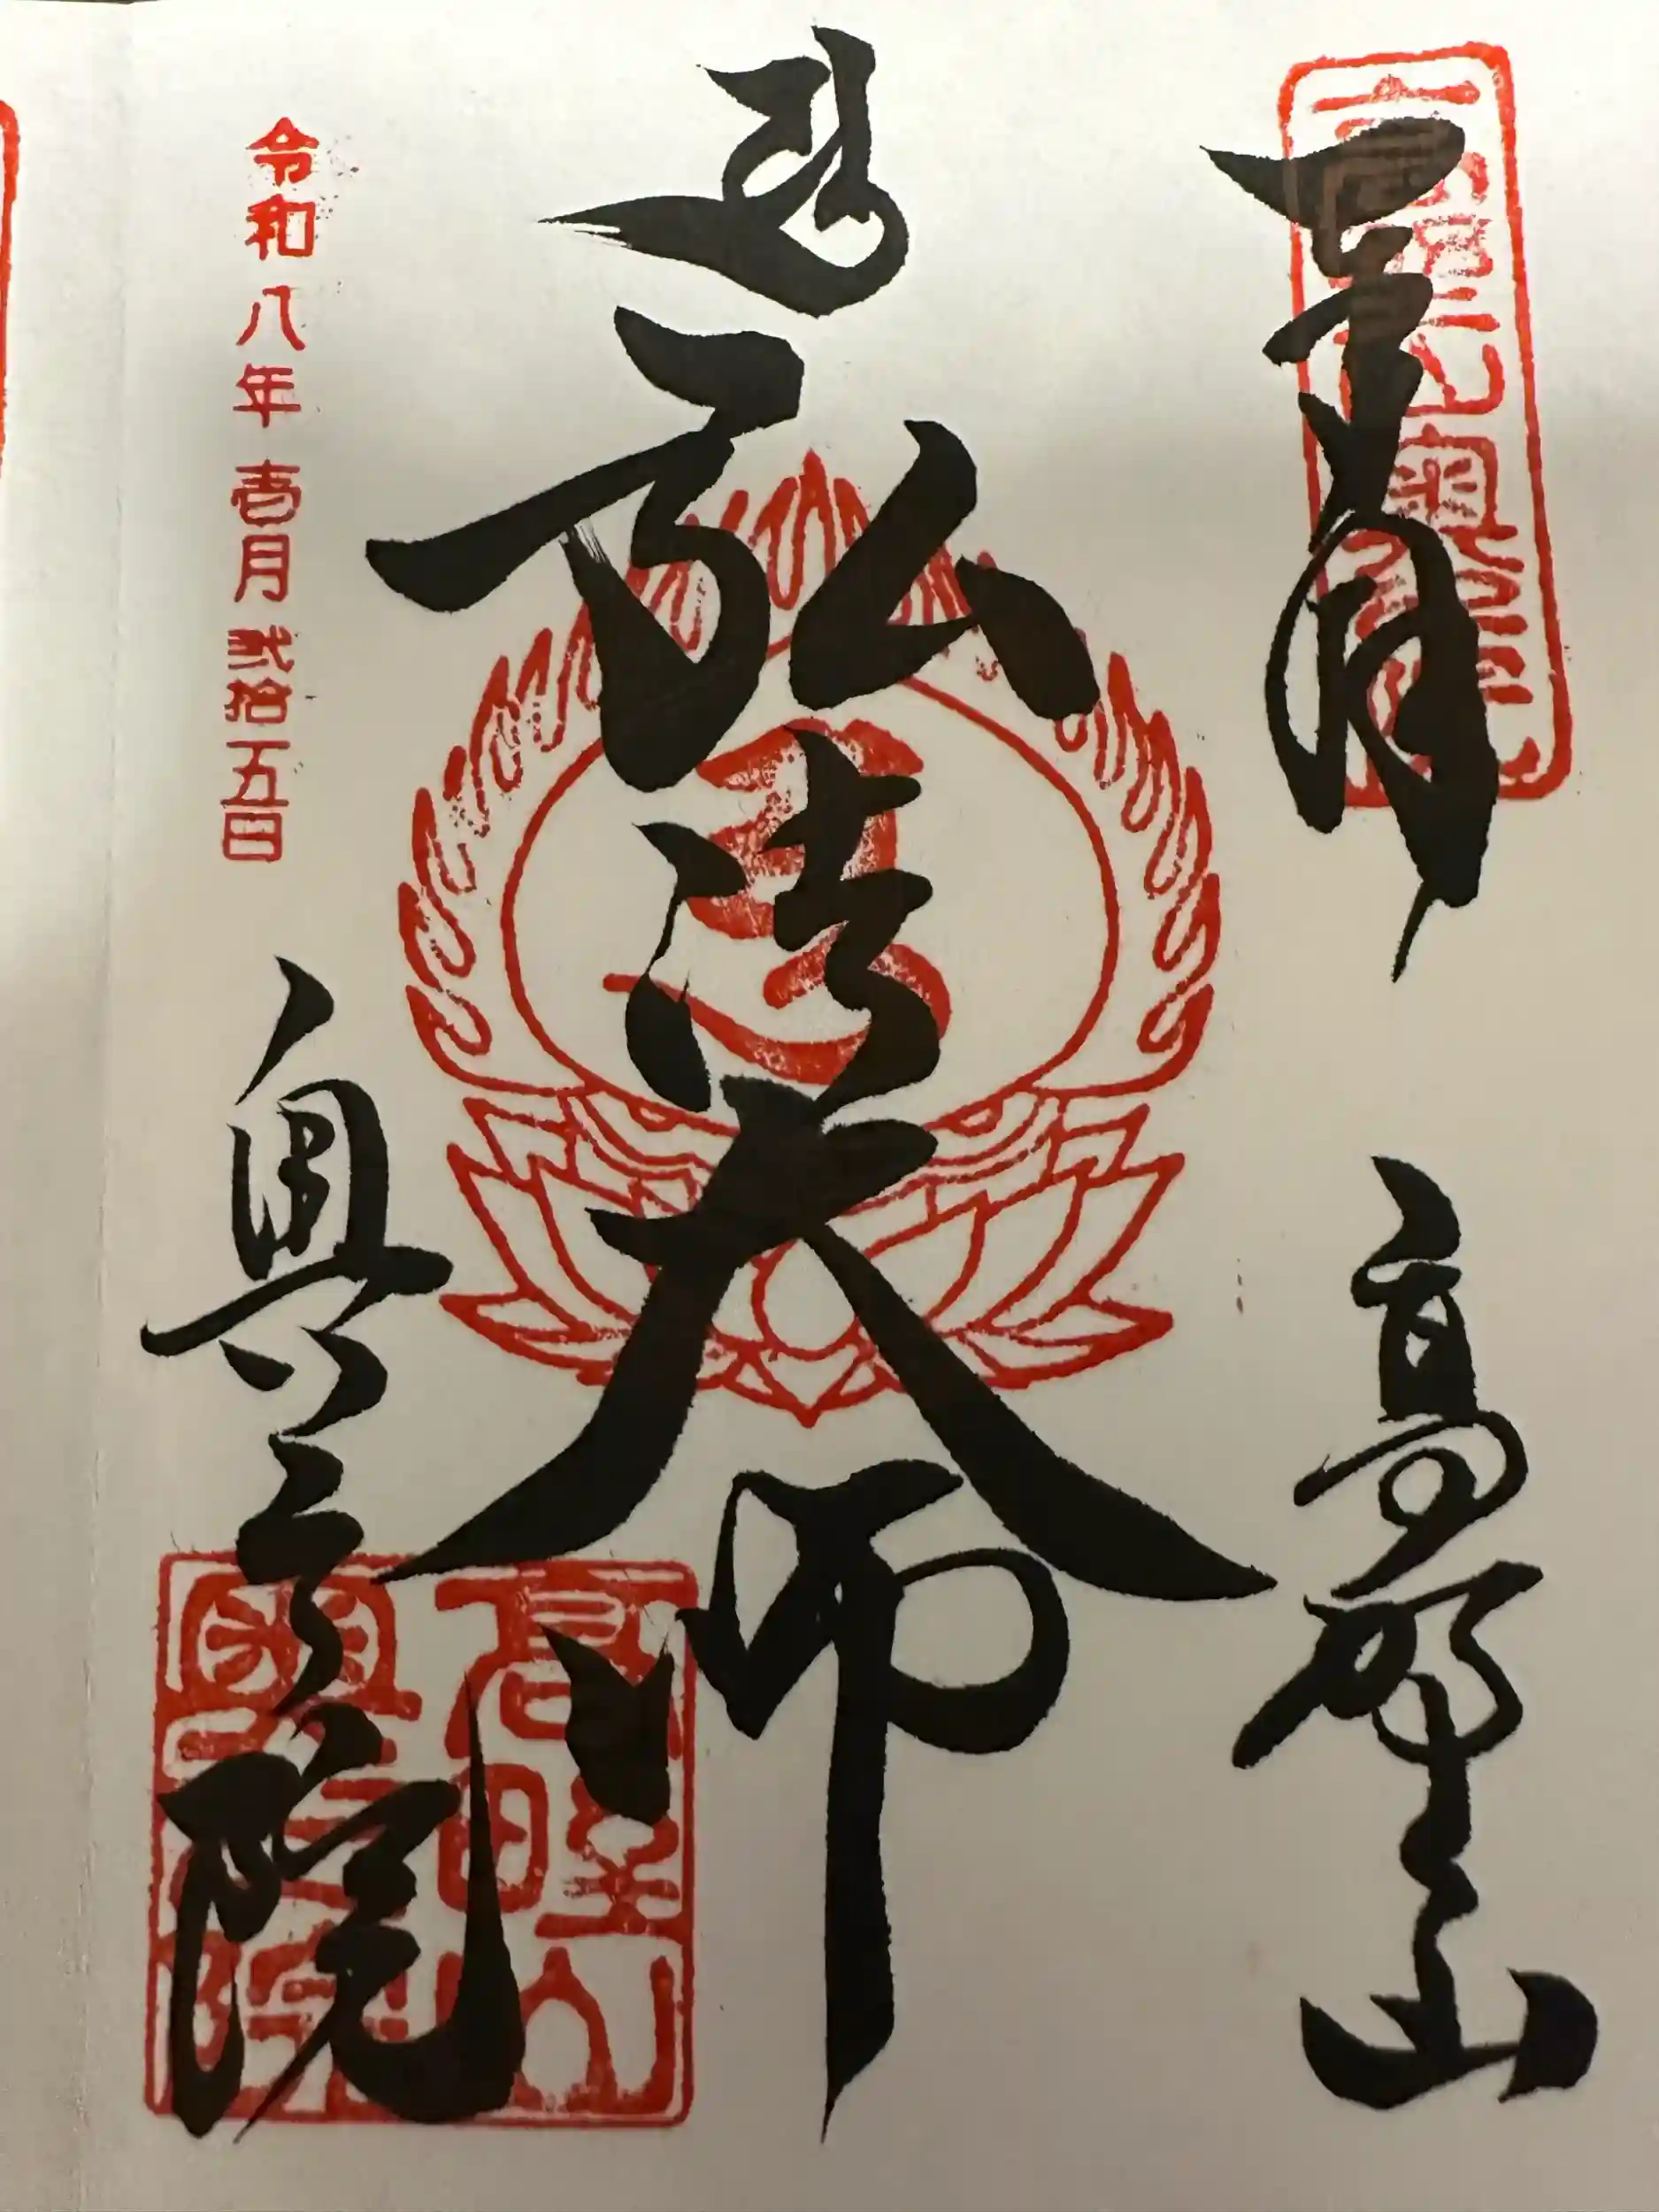 高野山
弘法大師
令和八年壱月弐拾五日
奥之院
高野山
奥之院